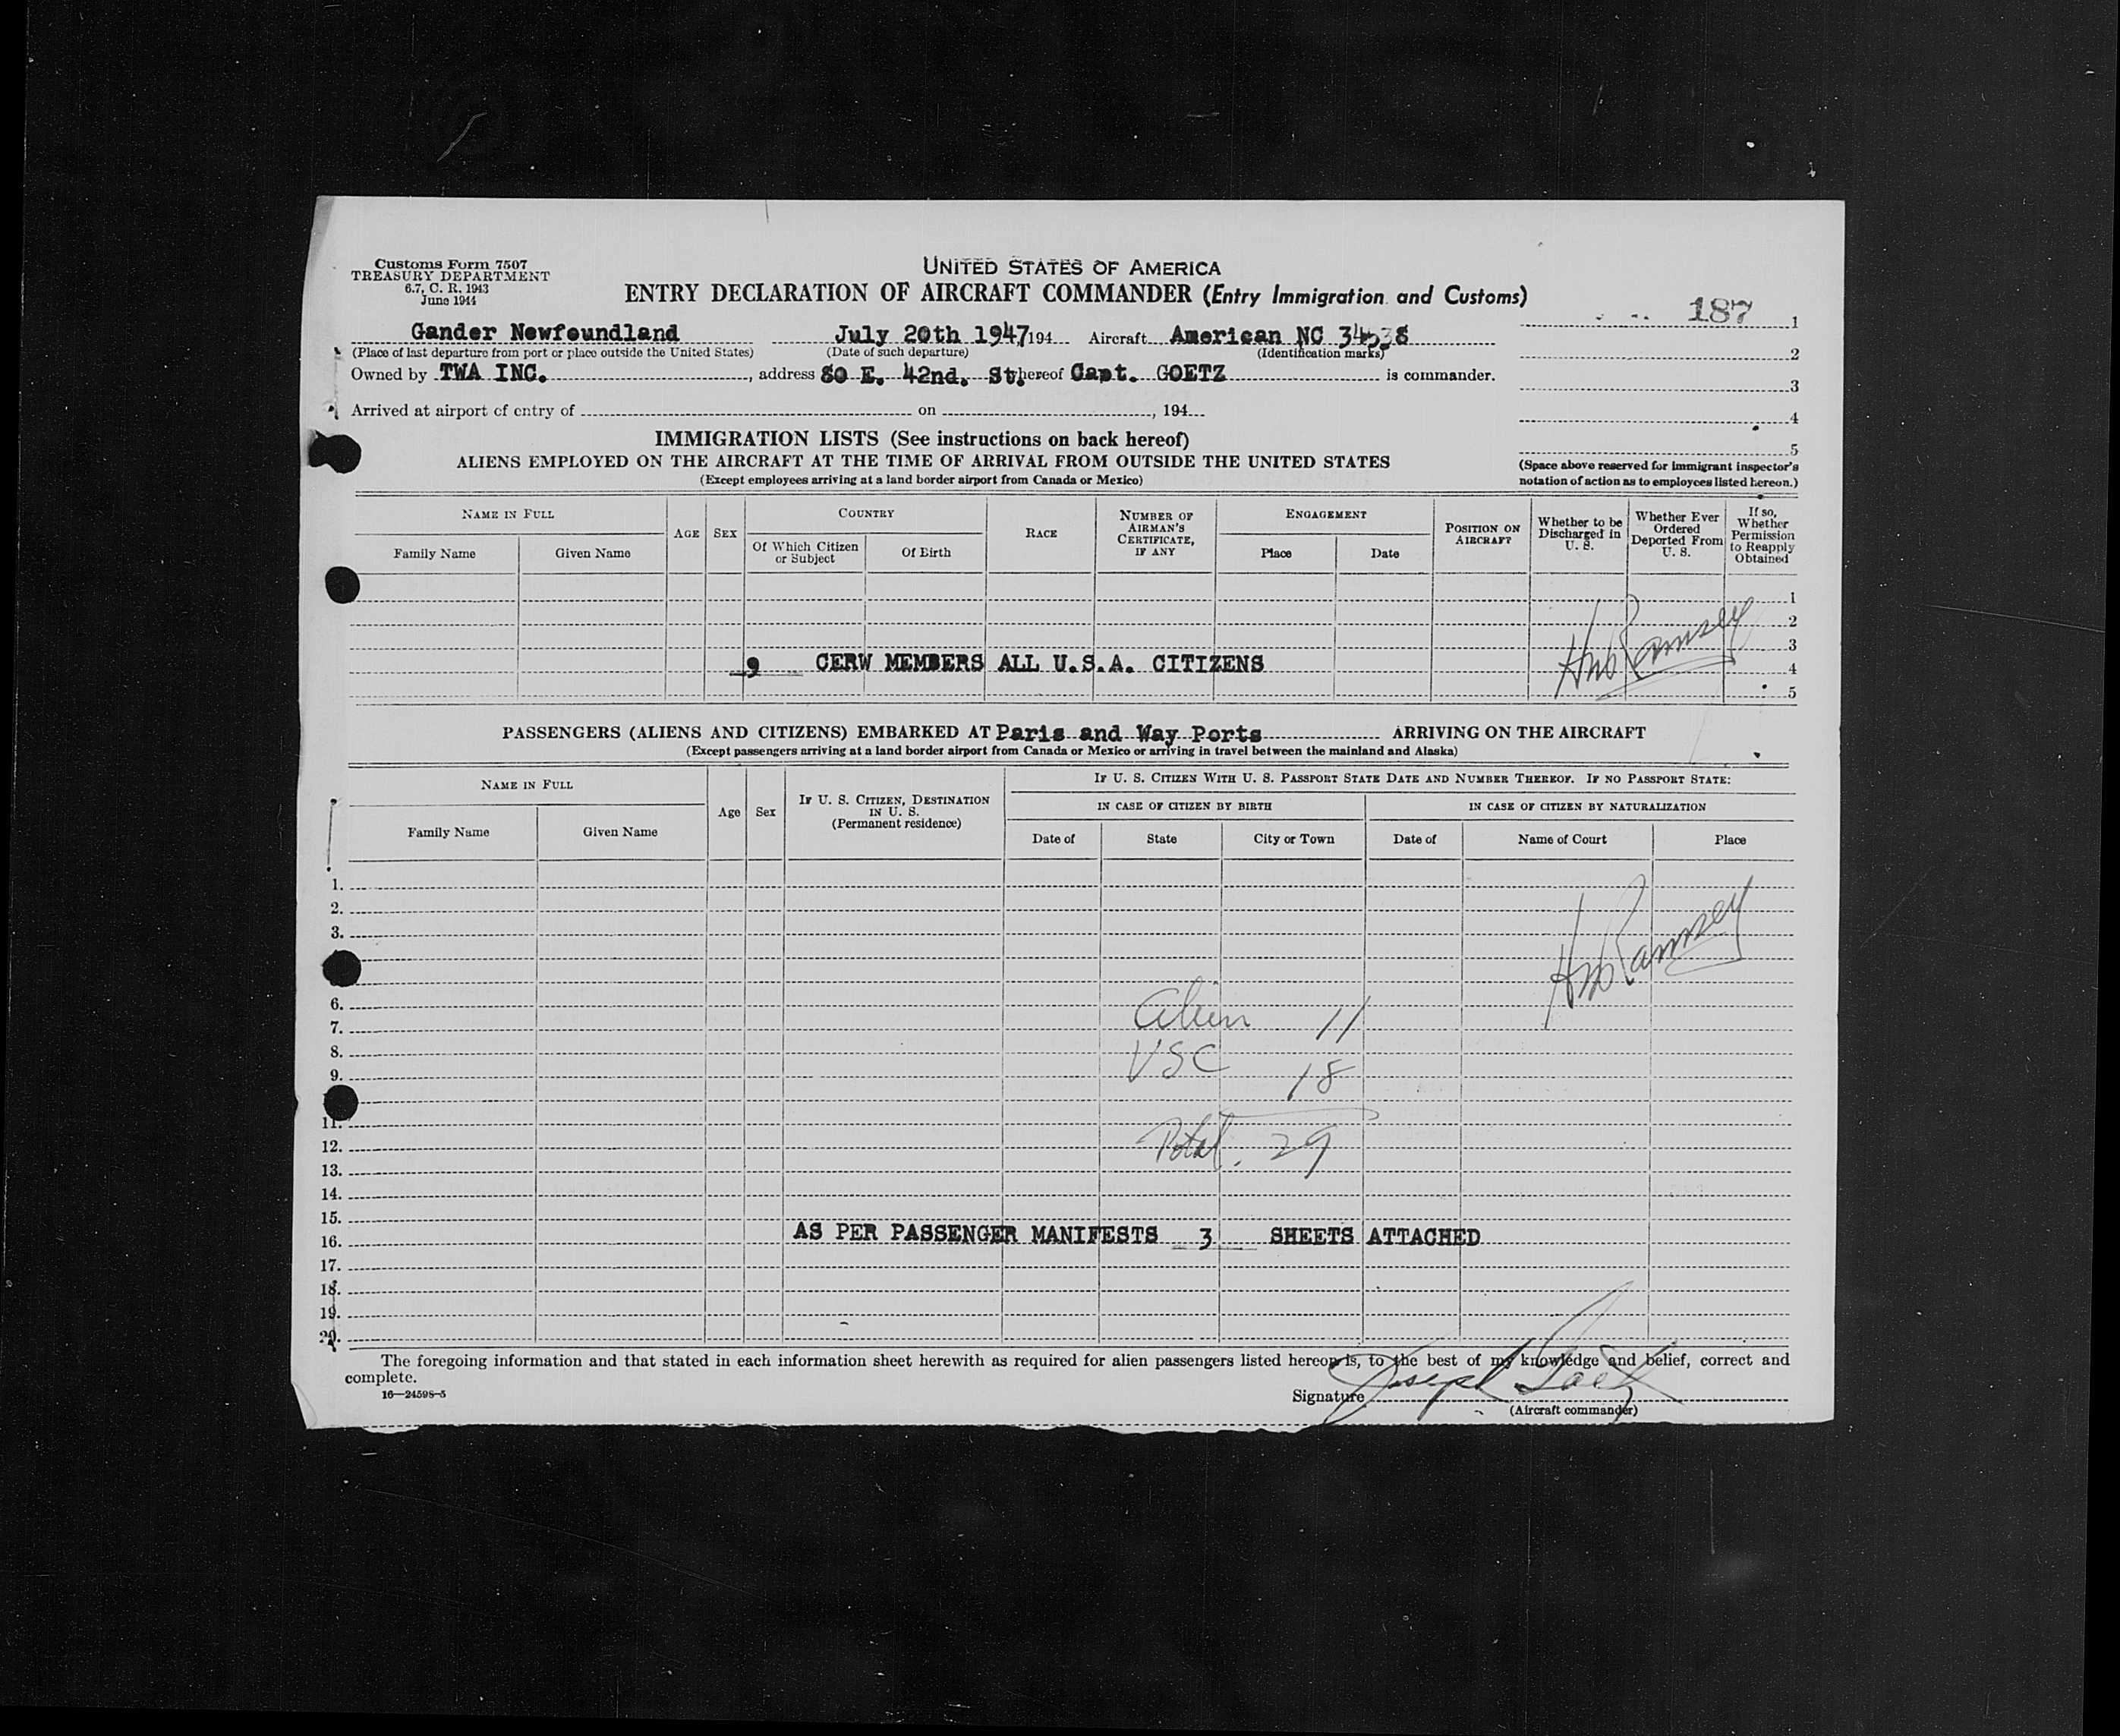 Customs Form 7507
TREASURY DEPARTMENT
6.7, C. R. 1943
June 1944
UNITED STATES OF AMERICA
ENTRY DECLARATION OF AIRCRAFT COMMANDER (Entry Immigration and Customs)
187 1
Gander Newfoundland July 20th 1947, 194 Aircraft American NC
(Place of last departure from port or place outside the United States) (Date of such departure) (Identification marks)
2
Owned by TWA INC. , address 80 E. 42nd. St. thereof Capt. GOETZ is commander.
3
Arrived at airport of entry of on , 194
4
IMMIGRATION LISTS (See instructions on back hereof)
5
ALIENS EMPLOYED ON THE AIRCRAFT AT THE TIME OF ARRIVAL FROM OUTSIDE THE UNITED STATES
(Except employees arriving at a land border airport from Canada or Mexico)
(Space above reserved for immigrant inspector's
notation of action as to employees listed hereon.)
NAME IN FULL
Family Name Given Name
AGE
SEX
COUNTRY
Of Which Citizen
or Subject
Of Birth
RACE
NUMBER OF
AIRMAN'S
CERTIFICATE,
IF ANY
ENGAGEMENT
Place Date
POSITION ON
AIRCRAFT
Whether to be
Discharged in
U. S.
Whether Ever
Ordered
Deported From
U. S.
If so,
Whether
Permission
to Reapply
Obtained
1
2
3
9 CERW MEMBERS ALL U.S.A. CITIZENS
Ramsey
4
5
PASSENGERS (ALIENS AND CITIZENS) EMBARKED AT Paris and Way Ports ARRIVING ON THE AIRCRAFT
(Except passengers arriving at a land border airport from Canada or Mexico or arriving in travel between the mainland and Alaska)
NAME IN FULL
Family Name Given Name
Age
Sex
IF U. S. CITIZEN, DESTINATION
IN U. S.
(Permanent residence)
IF U. S. CITIZEN WITH U. S. PASSPORT STATE DATE AND NUMBER THEREOF. IF NO PASSPORT STATE:
IN CASE OF CITIZEN BY BIRTH IN CASE OF CITIZEN BY NATURALIZATION
Date of State City or Town Date of Name of Court Place
1.
2.
3.
Ramsey
6.
Alien 11
7.
8.
USC 18
9.
11.
12.
Total. 29
13.
14.
15.
AS PER PASSENGER MANIFESTS 3 SHEETS ATTACHED
16.
17.
18.
19.
20.
The foregoing information and that stated in each information sheet herewith as required for alien passengers listed hereon is, to the best of my knowledge and belief, correct and
complete.
16—24598-5
Signature Joseph
(Aircraft commander)